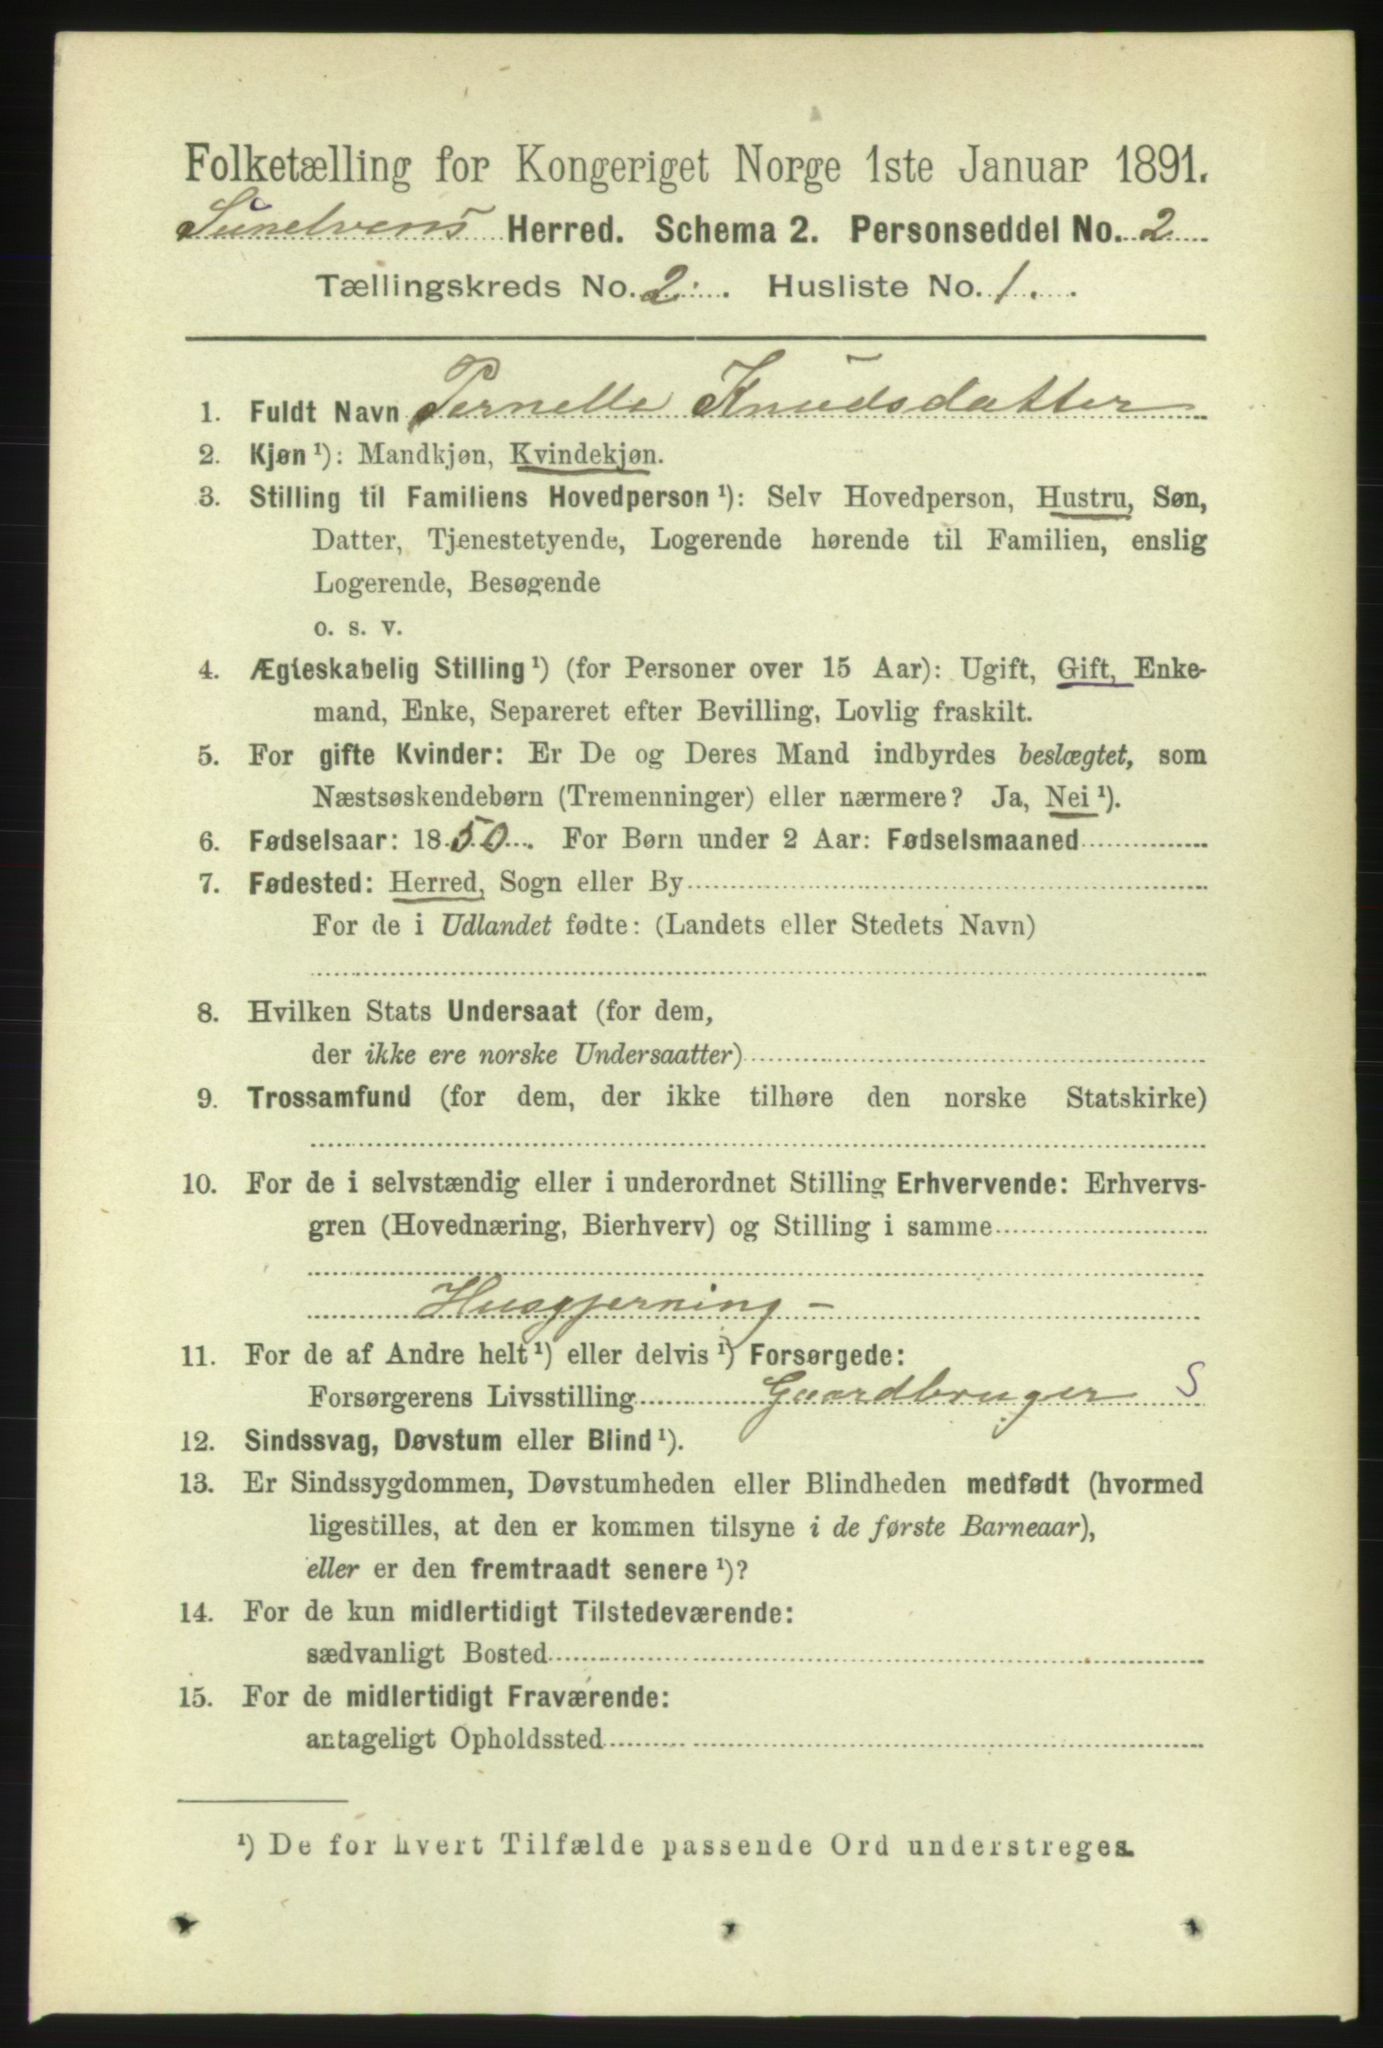 Folketælling for Kongeriget Norge 1ste Januar 1891.
Sunelvens Herred. Schema 2. Personseddel No. 2
Tællingskreds No. 2. Husliste No. 1.
1. Fuldt Navn Pernelle Knudsdatter
2. Kjøn ¹): Mandkjøn, Kvindekjøn.
3. Stilling til Familiens Hovedperson ¹): Selv Hovedperson, Hustru, Søn,
Datter, Tjenestetyende, Logerende hørende til Familien, enslig
Logerende, Besøgende
o. s. v.
4. Ægteskabelig Stilling ¹) (for Personer over 15 Aar): Ugift, Gift, Enke-
mand, Enke, Separeret efter Bevilling, Lovlig fraskilt.
5. For gifte Kvinder: Er De og Deres Mand indbyrdes beslægtet, som
Næstsøskendebørn (Tremenninger) eller nærmere? Ja, Nei ¹).
6. Fødselsaar: 1850. For Børn under 2 Aar: Fødselsmaaned
7. Fødested: Herred, Sogn eller By
For de i Udlandet fødte: (Landets eller Stedets Navn)
8. Hvilken Stats Undersaat (for dem,
der ikke ere norske Undersaatter)
9. Trossamfund (for dem, der ikke tilhøre den norske Statskirke)
10. For de i selvstændig eller i underordnet Stilling Erhvervende: Erhvervs-
gren (Hovednæring, Bierhverv) og Stilling i samme
Husgjerning -
11. For de af Andre helt ¹) eller delvis ¹) Forsørgede:
Forsørgerens Livsstilling Gaardbruger S
12. Sindssvag, Døvstum eller Blind ¹).
13. Er Sindssygdommen, Døvstumheden eller Blindheden medfødt (hvormed
ligestilles, at den er kommen tilsyne i de første Barneaar),
eller er den fremtraadt senere ¹)?
14. For de kun midlertidigt Tilstedeværende:
sædvanligt Bosted
15. For de midlertidigt Fraværende:
antageligt Opholdssted
¹) De for hvert Tilfælde passende Ord understreges.